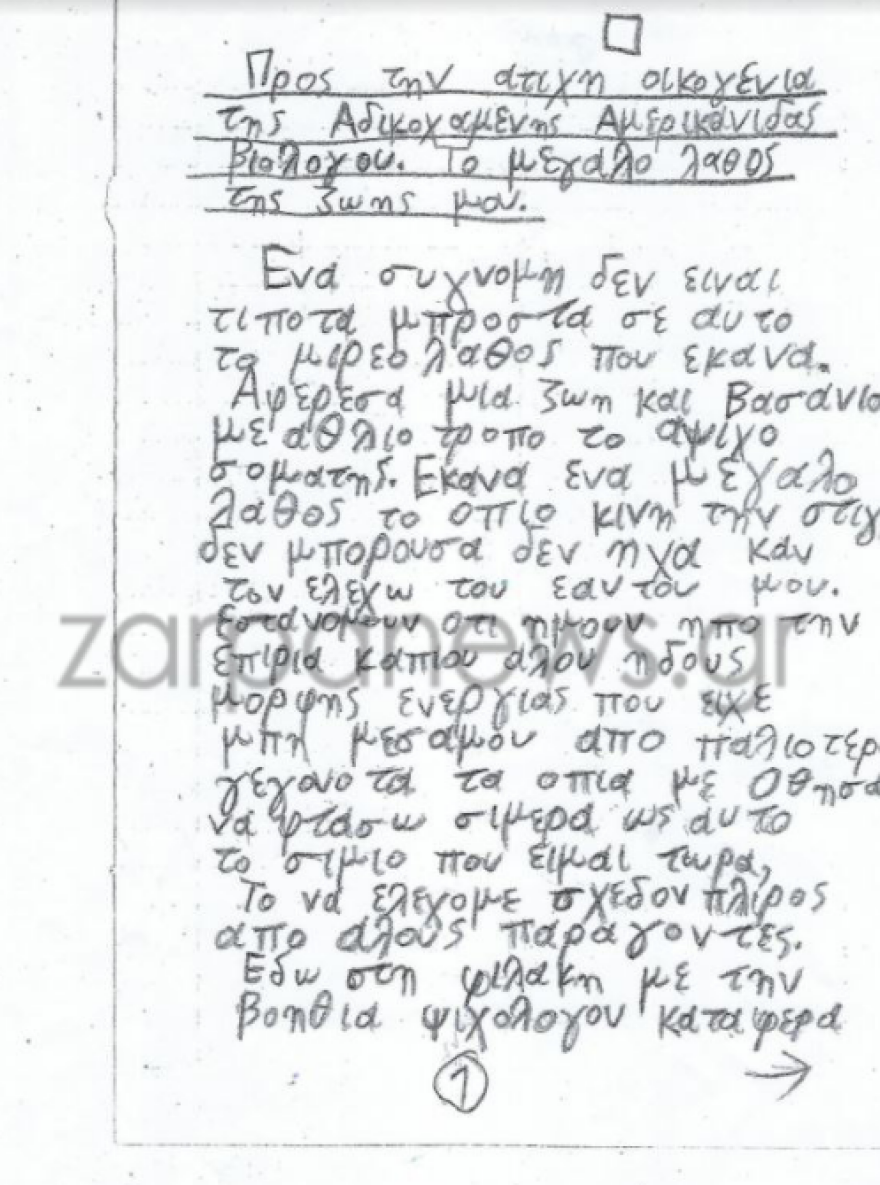 Προς την ατιχη οικογενια
της Αδικοχαμενης Αμερικανιδας
βιολογου. Το μεγαλο λαθος
της ζωης μου.
Ενα συγνομη δεν ειναι
τιποτα μπροστα σε αυτο
το μιρεο λαθος που εκανα.
Αφερεσα μια ζωη και βασανισ
με αθλιο τροπο το αψιχο
σοματης. Εκανα ενα μεγαλο
λαθος το οπιο κινη την στιγ
δεν μπορουσα δεν ηχα καν
τον ελεχω του εαυτου μου.
Εστανομουν οτι ημουν ηπο την
zarpanews.gr
επιρια καπιου αλου ηδους
μορφης ενεργιας που ειχε
μπη μεσαμου απο παλιοτερ
γεγονοτα τα οπια με Οθησα
να φτασω σιμερα ως αυτο
το σιμιο που ειμαι τωρα,
Το να ελεχομε σχεδον πλιρος
απο αλους παραγοντες.
Εδω στη φιλακη με την
βοηθια ψιχολογου καταφερα
1